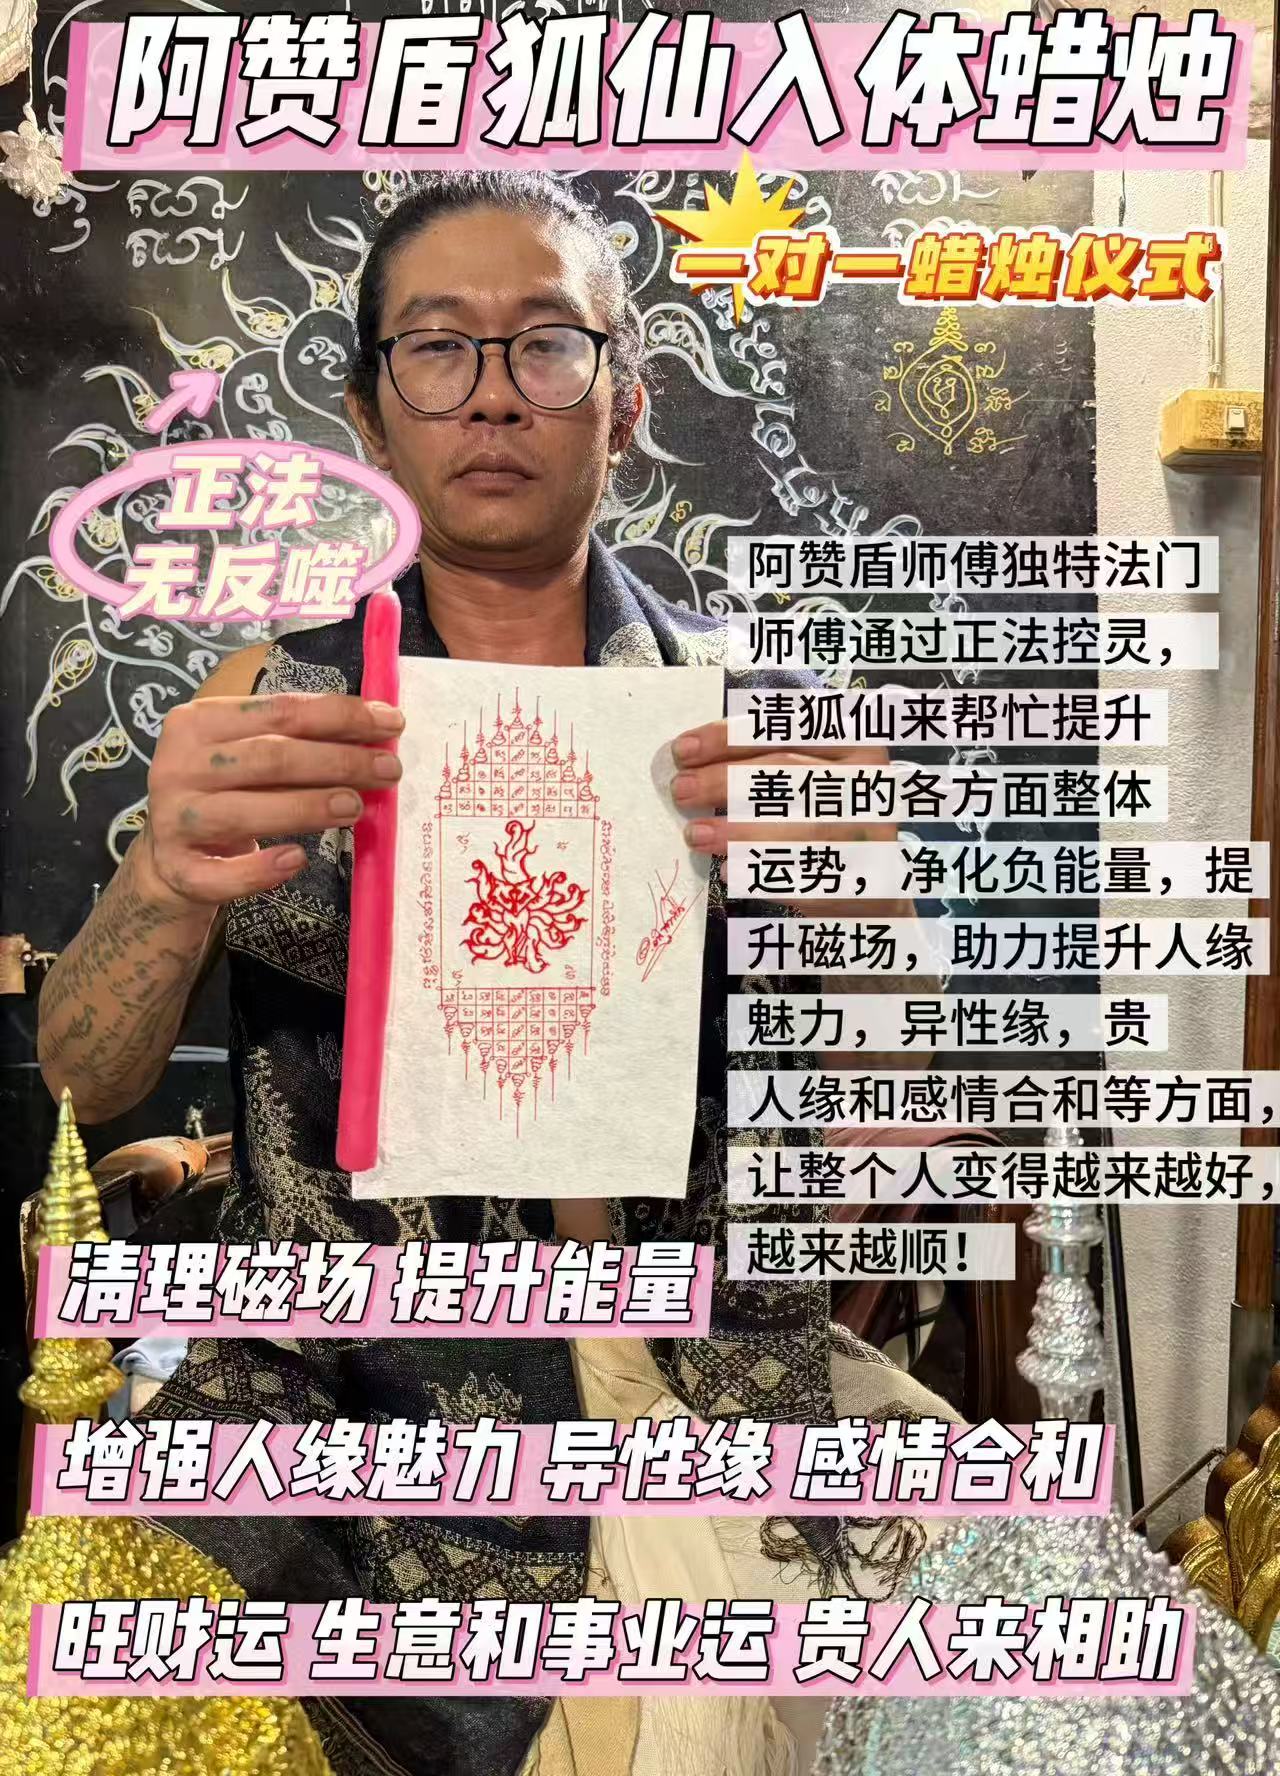 阿赞盾狐仙入体蜡烛
一对一蜡烛仪式
正法
无反噬
阿赞盾师傅独特法门
师傅通过正法控灵，
请狐仙来帮忙提升
善信的各方面整体
运势，净化负能量，提
升磁场，助力提升人缘
魅力，异性缘，贵
人缘和感情合和等方面，
让整个人变得越来越好，
越来越顺！
清理磁场 提升能量
增强人缘魅力 异性缘 感情合和
旺财运 生意和事业运 贵人来相助